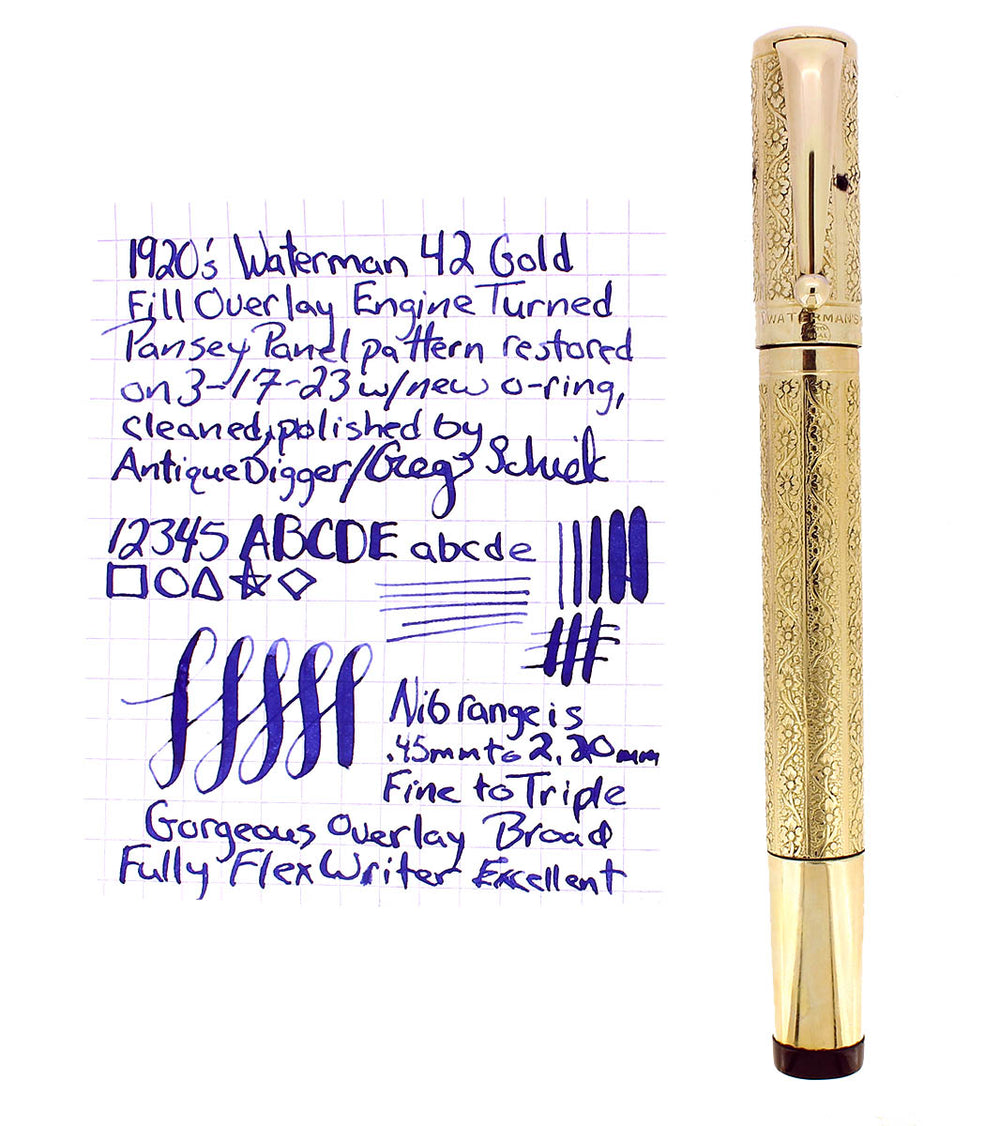 1920's Waterman 42 Gold
Fill Overlay Engine Turned
Pansey Panel pattern restored
on 3-17-23 w/new o-ring,
cleaned, polished by
Antique Digger/Greg Schiek
12345 ABCDE abcde
Nib range is
.45mm to 2.20mm
Fine to Triple
Broad
Gorgeous Overlay
Fully Flex Writer Excellent
WATERMAN'S